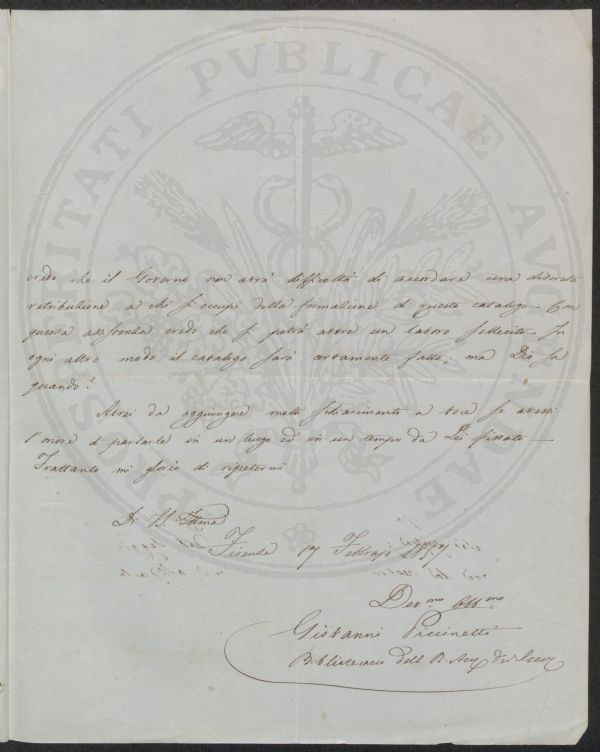 PROSPERITATI PVBLICAE AVGENDAE
credo che il Governo non avrà difficoltà di accordare una discreta
retribuzione a chi si occupi della formazione di questo catalogo. Con
questa credo che si potrà avere un lavoro sollecito. In
ogni altro modo il catalogo sarà certamente fatto; ma Dio sa
quando!
Avrei da aggiungere molti schiarimenti a voce se avessi
l'onore di parlarle in un luogo ed in un tempo da Lei fissato —
Frattanto mi glorio di ripetermi
Di V. S. Illma
Firenze 17 Febbrajo
Dev.mo Obb.mo
Giovanni
Bibliotecario dell